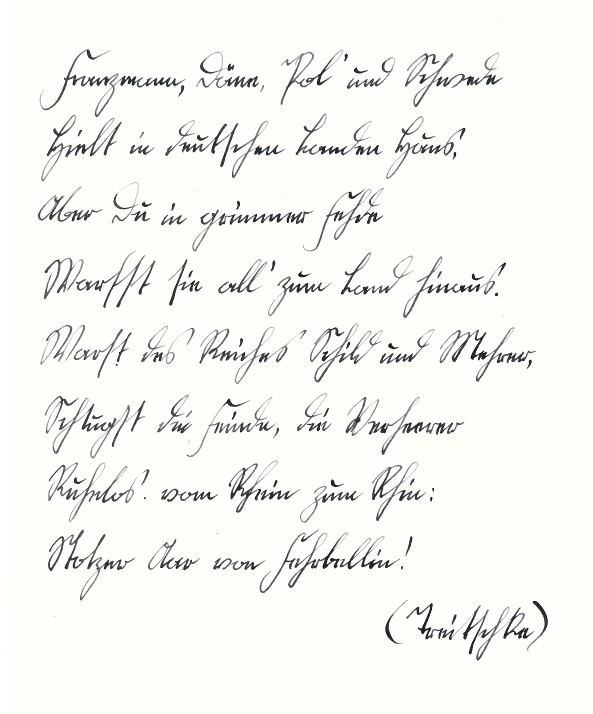 Franzmann, Däne, Pol' und Schwede
Hielt in deutschen Landen Haus,
Aber Du in grimmer Fehde
Warfst sie all' zum Land hinaus.
Warst des Reiches Schild und Mehrer,
Schlugst die Feinde, die Verheerer
Ruhelos. vom Rhein zum Rhin:
Stolzer Aar von Fehrbellin!
(Treitschke)